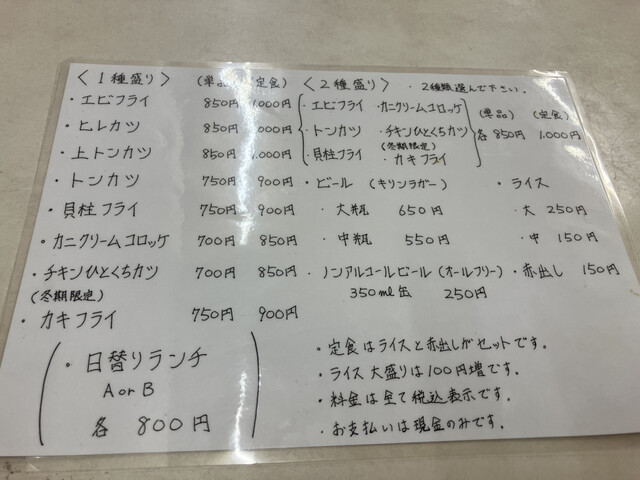 〈1種盛り〉 (単品) (定食)
・エビフライ 850円 1,000円
・ヒレカツ 850円 1,000円
・上トンカツ 850円 1,000円
・トンカツ 750円 900円
・貝柱フライ 750円 900円
・カニクリームコロッケ 700円 850円
・チキンひとくちカツ 700円 850円
(冬期限定)
・カキフライ 750円 900円
・日替りランチ
A or B
各 800円
〈2種盛り〉 ・2種類選んで下さい。
・エビフライ ・カニクリームコロッケ (単品) (定食)
・トンカツ ・チキンひとくちカツ 各850円 1,000円
(冬期限定)
・貝柱フライ ・カキフライ
・ビール (キリンラガー)
・大瓶 650円
・中瓶 550円
・ノンアルコールビール (オールフリー)
350ml缶 250円
・ライス
・大 250円
・中 150円
・赤出し 150円
・定食はライスと赤出しがセットです。
・ライス大盛りは100円増です。
・料金は全て税込表示です。
・お支払いは現金のみです。